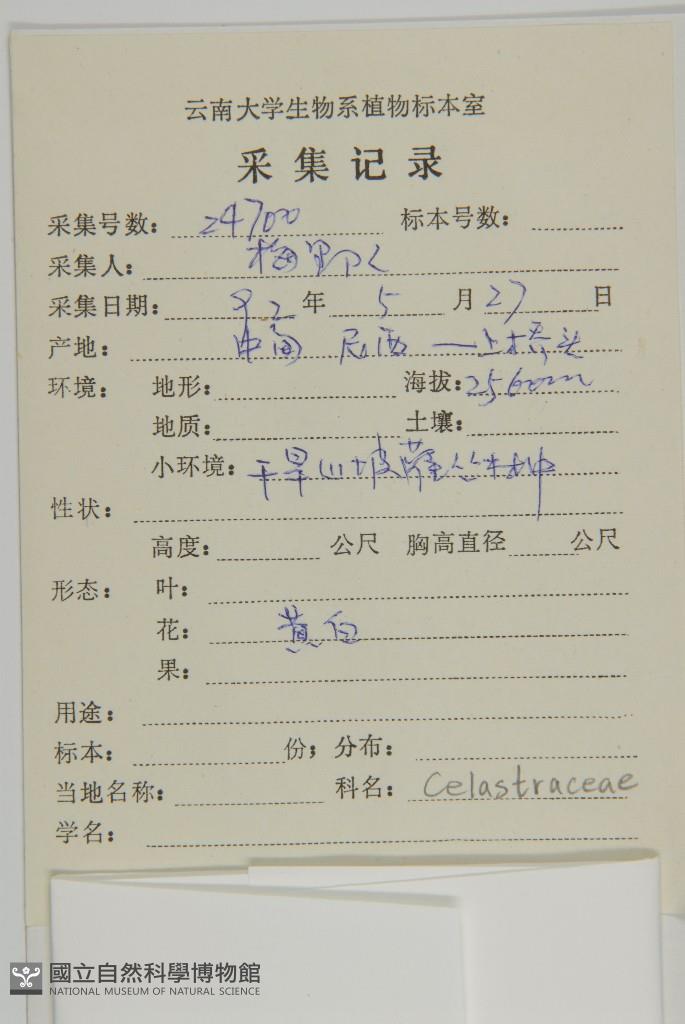 云南大学生物系植物标本室
采集记录
采集号数: 24700 标本号数:
采集人:
采集日期: 92 年 5 月 27 日
产地: 中甸 尼西 — 上桥头
环境: 地形: 海拔: 2560m
地质: 土壤:
小环境: 干旱山坡灌丛林中
性状:
高度: 公尺 胸高直径 公尺
形态: 叶:
花: 黄白
果:
用途:
标本: 份; 分布:
当地名称: 科名: Celastraceae
学名:
國立自然科學博物館
NATIONAL MUSEUM OF NATURAL SCIENCE